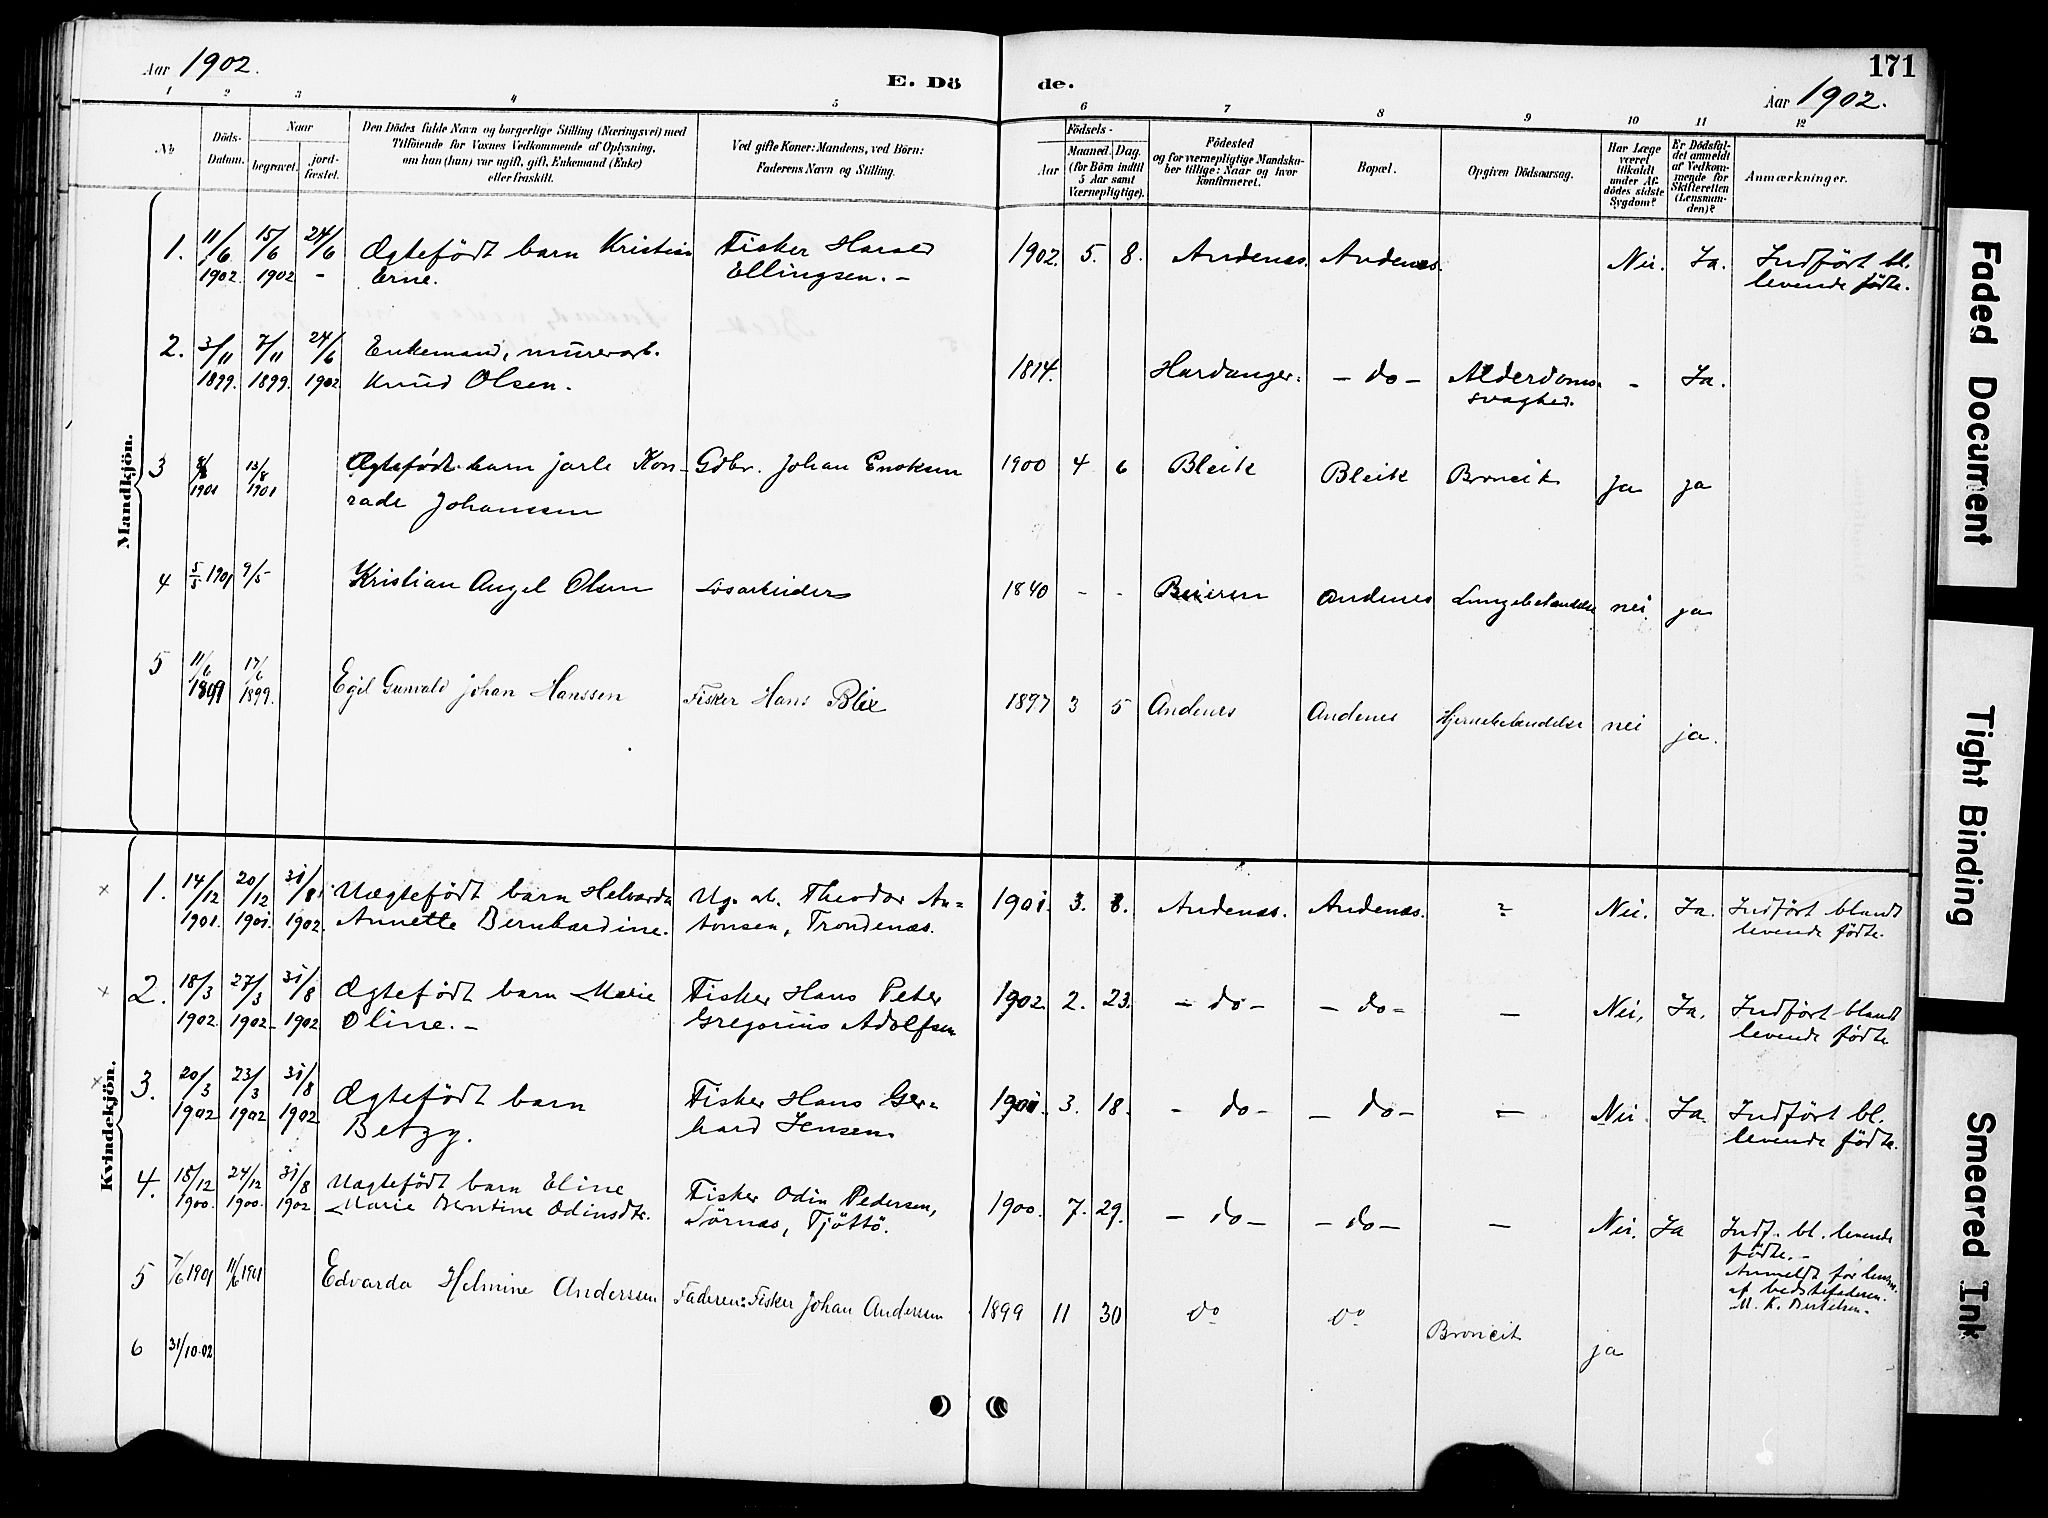 Aar 1902.
E. Dö
de.
171
Aar 1902.
1 2 3 4 5 6 7 8 9 10 11 12
No
Döds-
Datum.
Naar
begravet.
jord-
fæstet.
Den Dödes fulde Navn og borgerlige Stilling (Næringsvei) med
Tilföiende for Voxnes Vedkommende af Oplysning,
om han (hun) var ugift, gift, Enkemand (Enke)
eller fraskilt.
Ved gifte Koner: Mandens, ved Börn:
Faderens Navn og Stilling.
Födsels-
Aar
Maaned. Dag.
(for Börn indtil
5 Aar samt
Værnepligtige).
Födested
og for værnepligtige Mandska-
ber tillige: Naar og hvor
konfirmeret.
Bopæl.
Opgiven Dödsaarsag.
Har Læge
været
tilkaldt
under Af-
dödes sidste
Sygdom?
Er Dödsfal-
det anmeldt
af Vedkom-
mende for
Skifteretten
(Lensman-
den)?
Anmærkninger.
Mandkjön.
1. 11/6 15/6 24/6 Ægtefödt barn Kristian Fisker Harald 1902. 5. 8. Andenæs. Andenæs. Nei. Ja. Indført bl.
1902. 1902 - Erne. Ellingsen. - levende fødte.
2. 3/11 7/11 24/6 Enkemand, murerarb.
1899. 1899. 1902. Knud Olsen. 1814. Hardanger. - do - Alderdoms- - Ja.
svaghed.
3 8/8 13/8 Ægtefødt barn Jarle Kon- Gdbr. Johan Enoksen 1900 4 6 Bleik Bleik Broncit ja ja
1901 1901 rade Johanssen
4 5/5 1901 9/5 Kristian Angel Olsen Løsarbeider 1840 - - Beieren Andenes Lungebetændelse nei. ja
5 11/6 17/6 Egil Gunvald Johan Hanssen Fisker Hans Blix 1897 3 5 Andenes Andenes Hjernebetændelse nei ja.
1899 1899.
Kvindekjön.
x 1. 14/12 20/12 31/8 Uægtefödt barn Helvarda Ug. arb. Theodor An- 1901. 3. 8. Andenæs. Andenæs. Nei. Ja. Indført blandt
1901. 1901. 1902. Annette Bernhardine. tonsen, Trondenæs. levende fødte.
x 2. 18/3 27/3 31/8 Ægtefödt barn Marie Fisker Hans Peter 1902. 2. 23. - do - - do - - Nei. Ja. Indført blandt
1902. 1902. 1902 Oline. - Gregorius Adolfsen levende fødte
x 3. 20/3 23/3 31/8 Ægtefödt barn Fisker Hans Ger- 1901. 3. 18. - do - - do - - Nei. Ja. Indført bl.
1902 1902 1902 Betzy. hard Jensen. levende fødte.
4. 18/12 24/12 31/8 Uægtefödt barn Eline Fisker Odin Pedersen, 1900. 7. 29. - do - - do - - Nei. Ja Indf. bl. levende
1900. 1900. 1902 Marie Berntine Odinsdtr. Sörnæs, Tjöttö. fødte. -
Anmeldt for lensm.
af bedstefaderen
M. K. Bertelsen.
5 7/6 1901 11/6 1901 Edvarda Helmine Anderssen Faderen: Fisker Johan Anderssen 1899 11 30 do do Broncit ja
6 31/10.02
Faded Document
Tight Binding
Smeared Ink